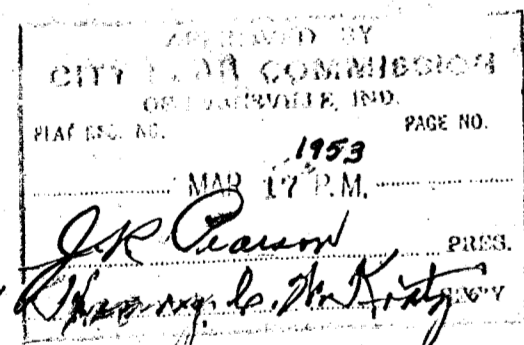 APPROVED BY
CITY PLAN COMMISSION
OF EVANSVILLE, IND.
PLAT REC. NO. PAGE NO.
1953
MAR 17 P.M.
J.R. Pearson PRES.
SEC'Y